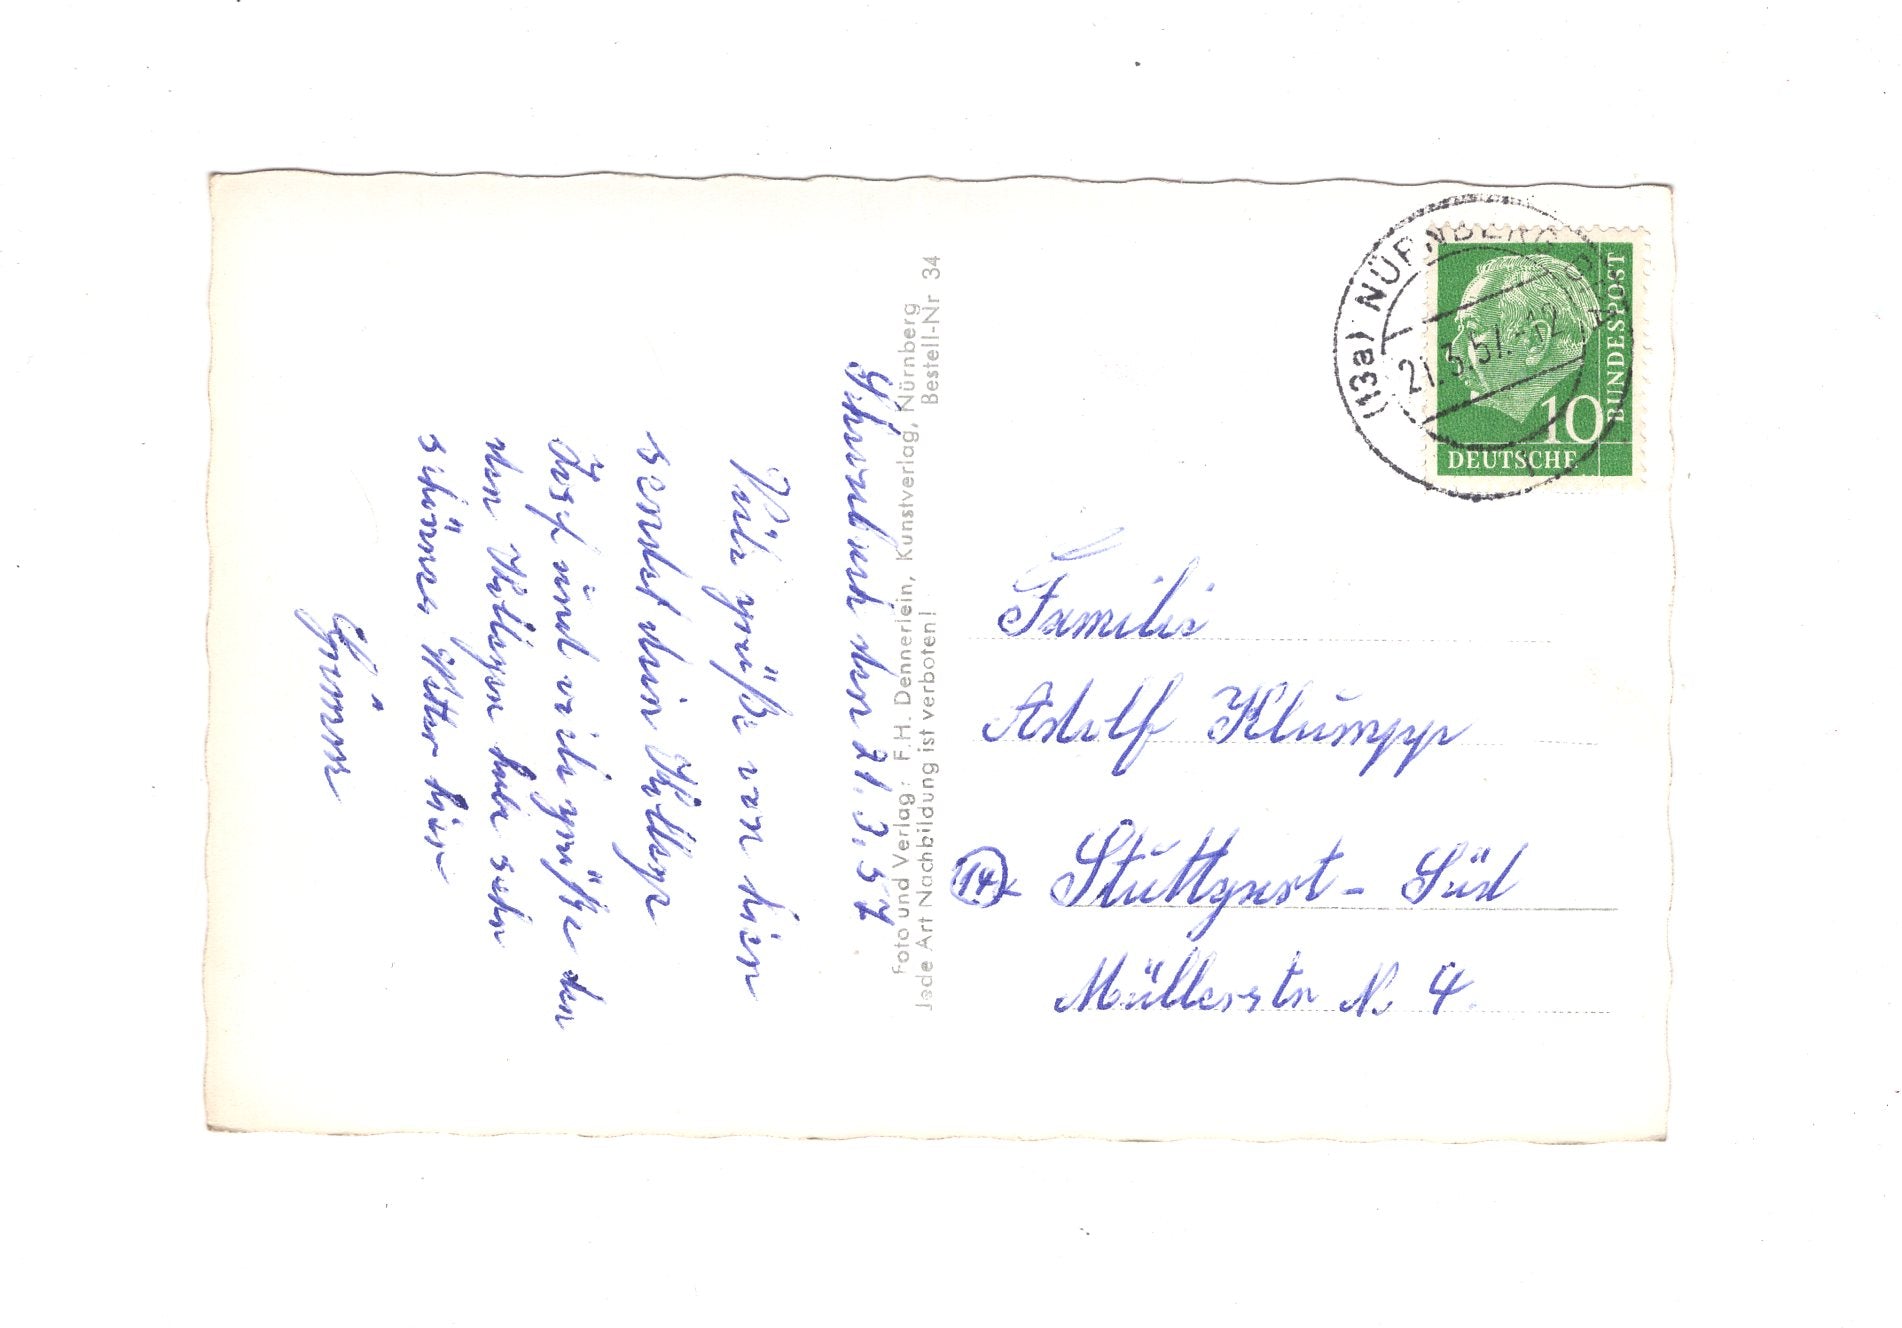 Schwabach den 21.3.57
Viele grüße von hier
sendet dein Kollege
Josef und viele grüße an
den Kollegen habe sehr
schönes Wetter hier
(13a) NÜRNBERG
21.3.57.-12
DEUTSCHE
BUNDESPOST
10
Foto und Verlag: F.H. Dennerlein, Kunstverlag, Nürnberg
Jede Art Nachbildung ist verboten! Bestell-Nr 34
Familie
Adolf Klumpp
(14a) Stuttgart - Süd
Müllerstr N. 4.